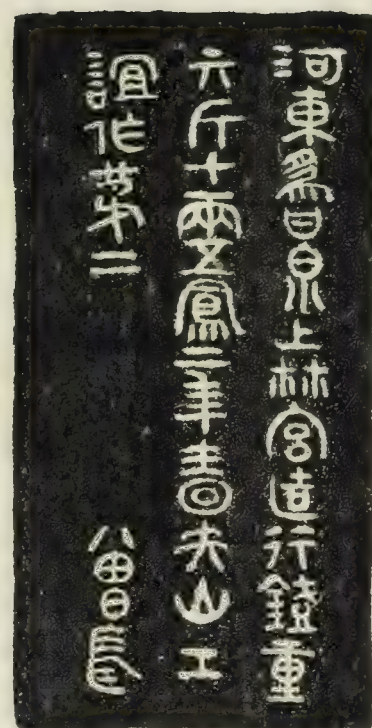 河東為甘泉上林宮造行鐙重
六斤十兩五鳳二年嗇夫山工
誼作第二